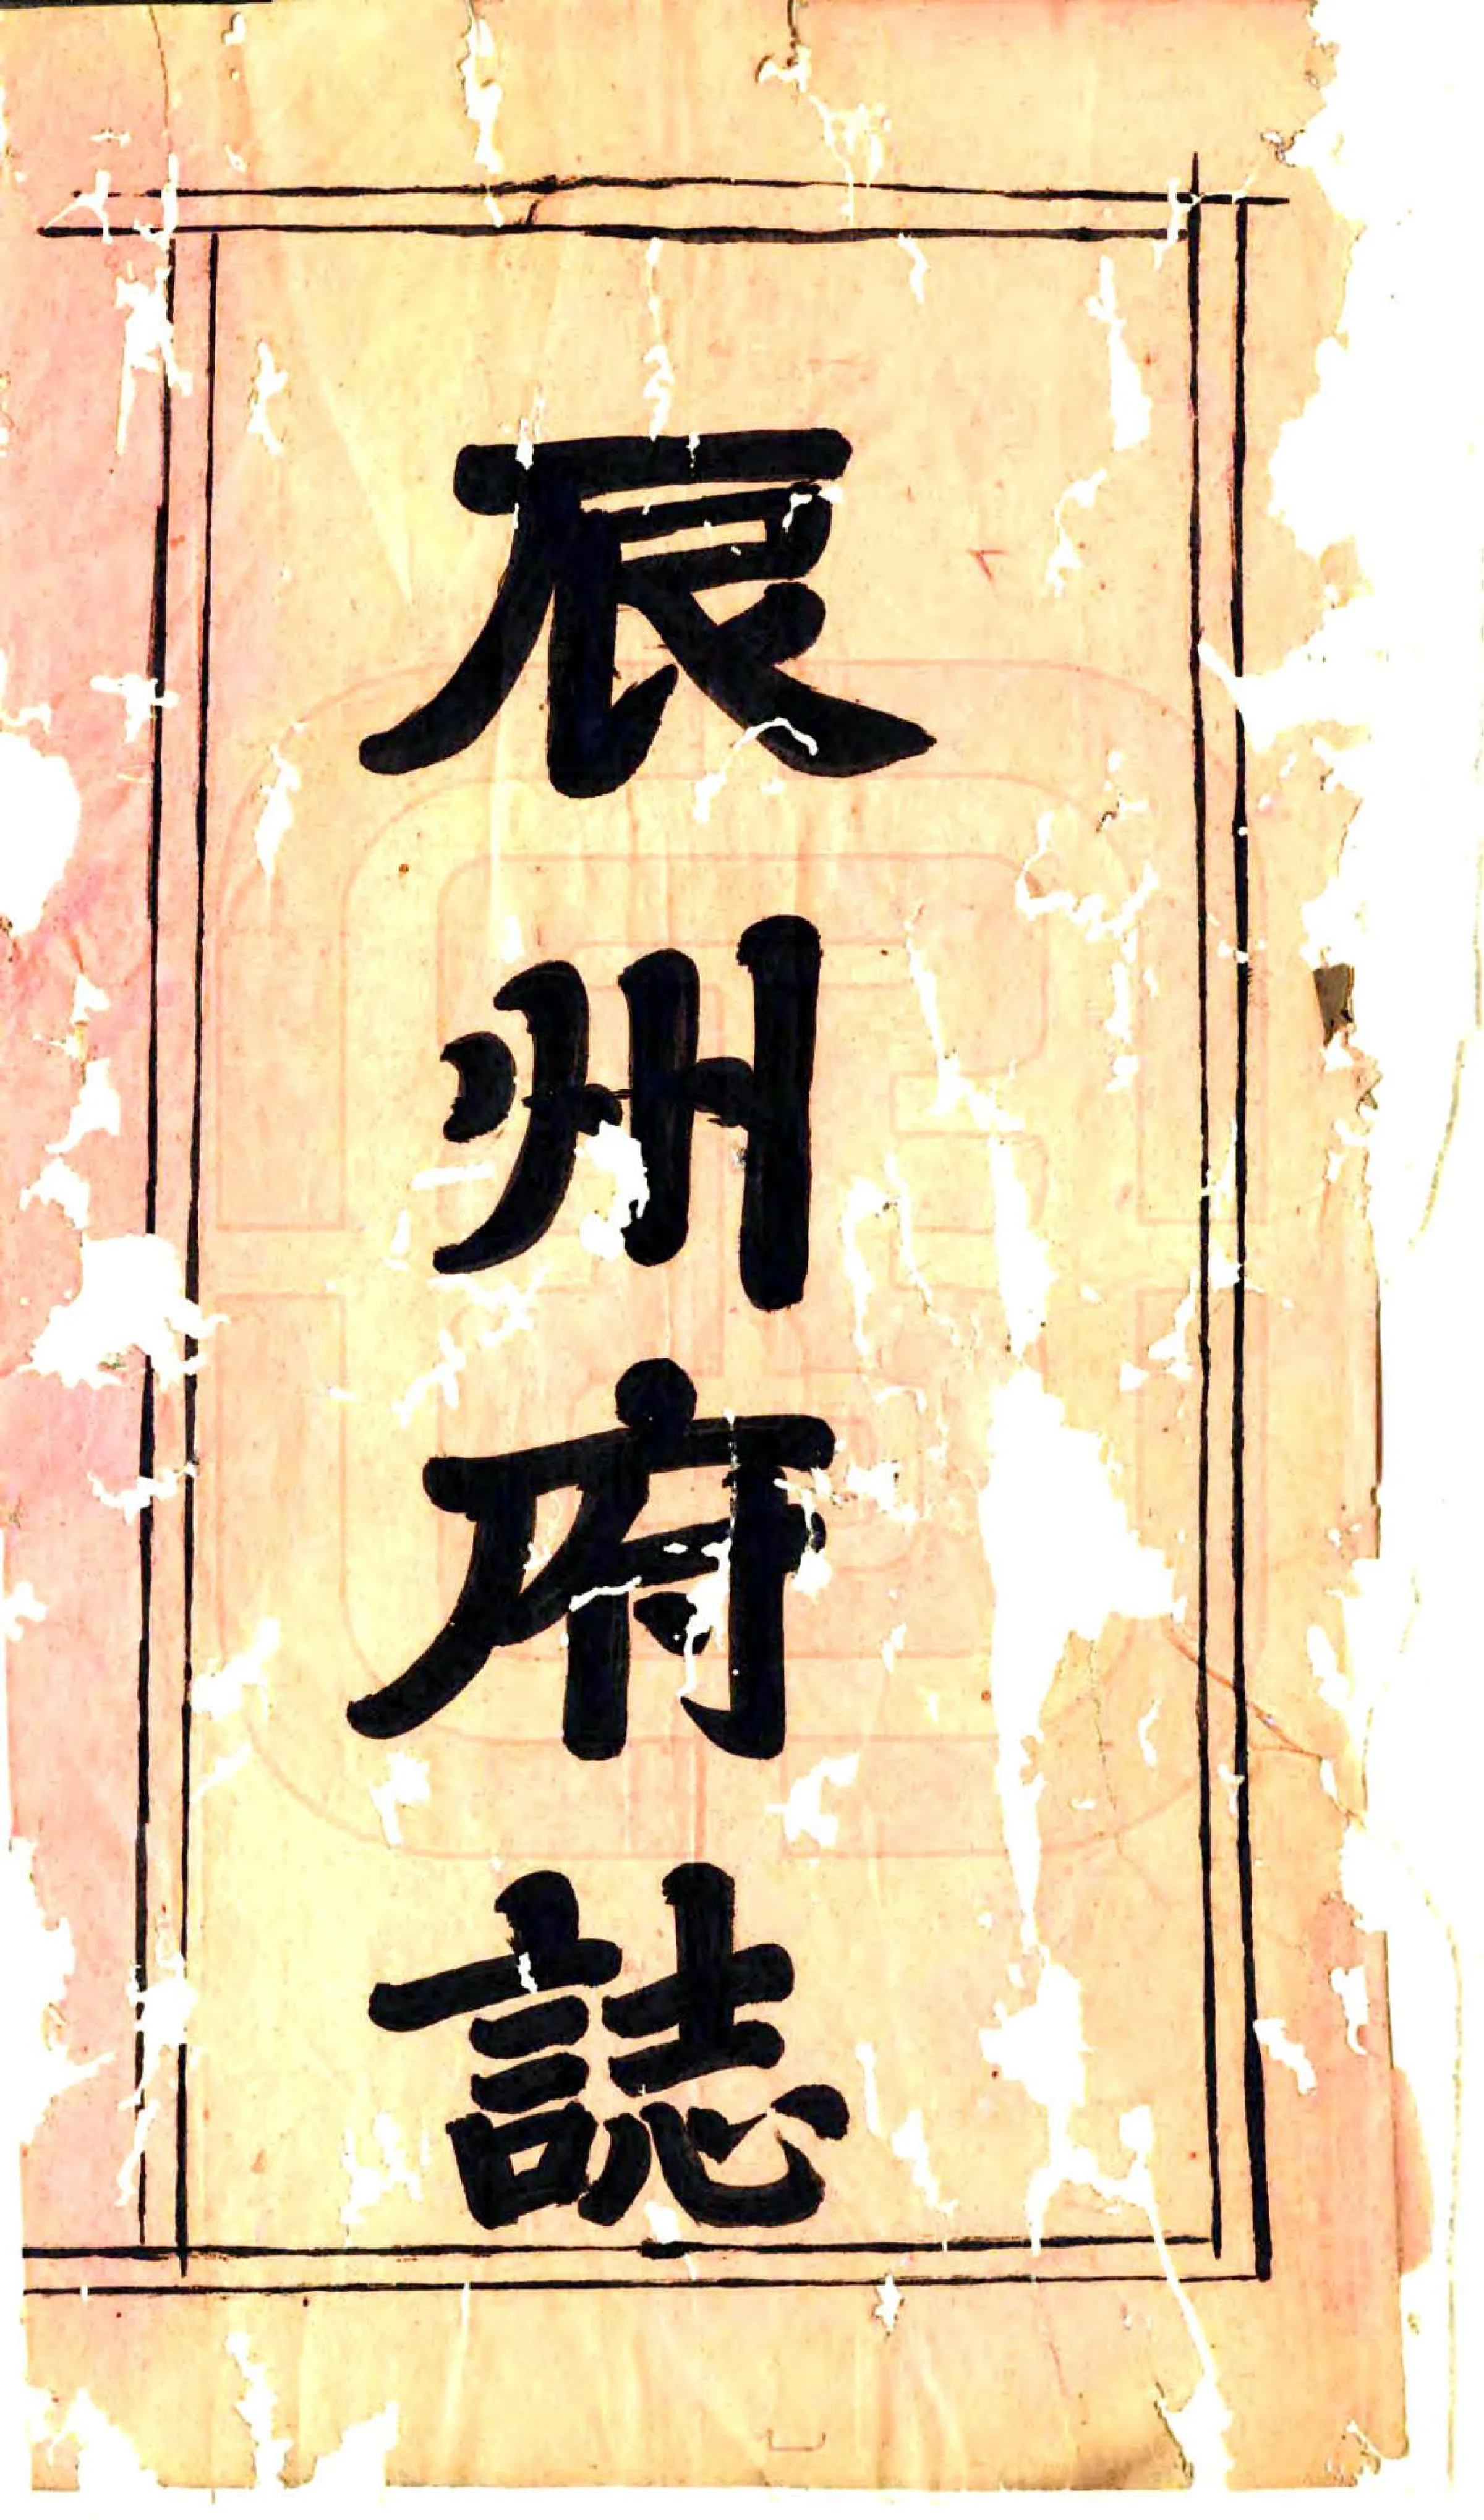 辰州府誌